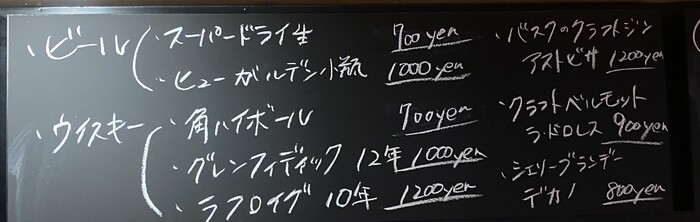 ・ビール
・スーパードライ生 700yen
・ヒューガルデン小瓶 1000yen
・ウイスキー
・角ハイボール 700yen
・グレンフィディック 12年 1000yen
・ラフロイグ 10年 1200yen
・バスクのクラフトジン
アストビザ 1200yen
・クラフトベルモット
ラ・ドロレス 900yen
・シェリーブランデー
デカノ 800yen